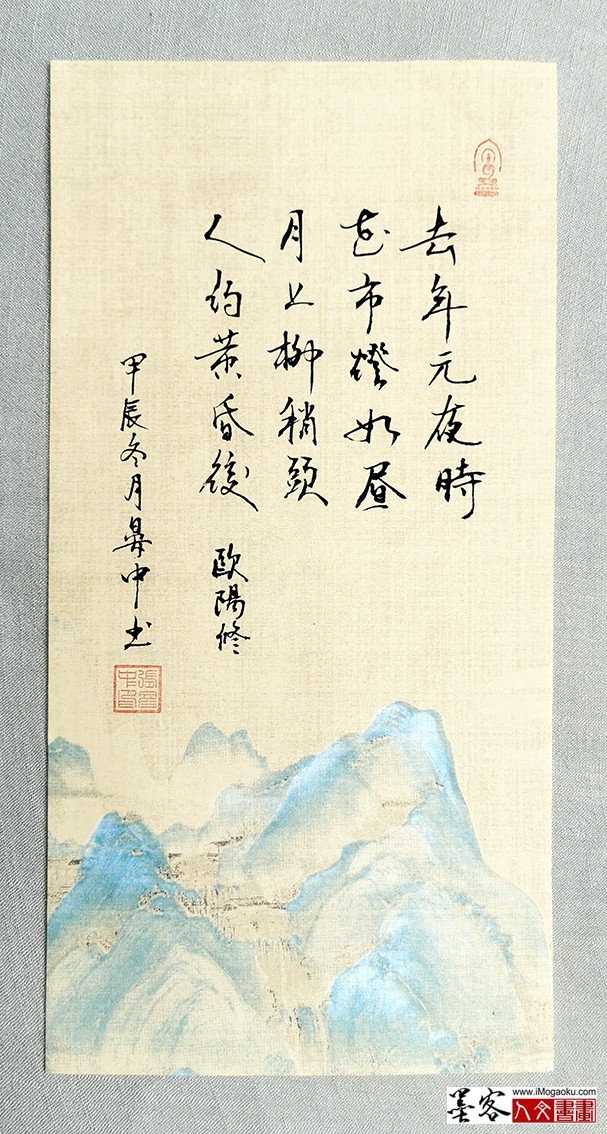 去年元夜時
花市燈如昼
月上柳稍頭
人約黄昏後
歐陽修
甲辰冬月
中書
墨客
www.iMogaoku.com
人文書畫